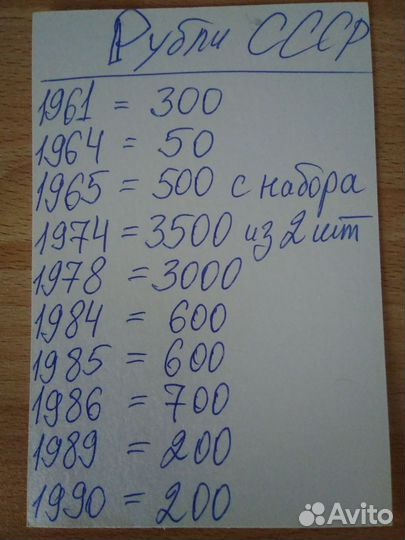 Рубли СССР
1961 = 300
1964 = 50
1965 = 500 с набора
1974 = 3500 из 2 шт
1978 = 3000
1984 = 600
1985 = 600
1986 = 700
1989 = 200
1990 = 200
Avito